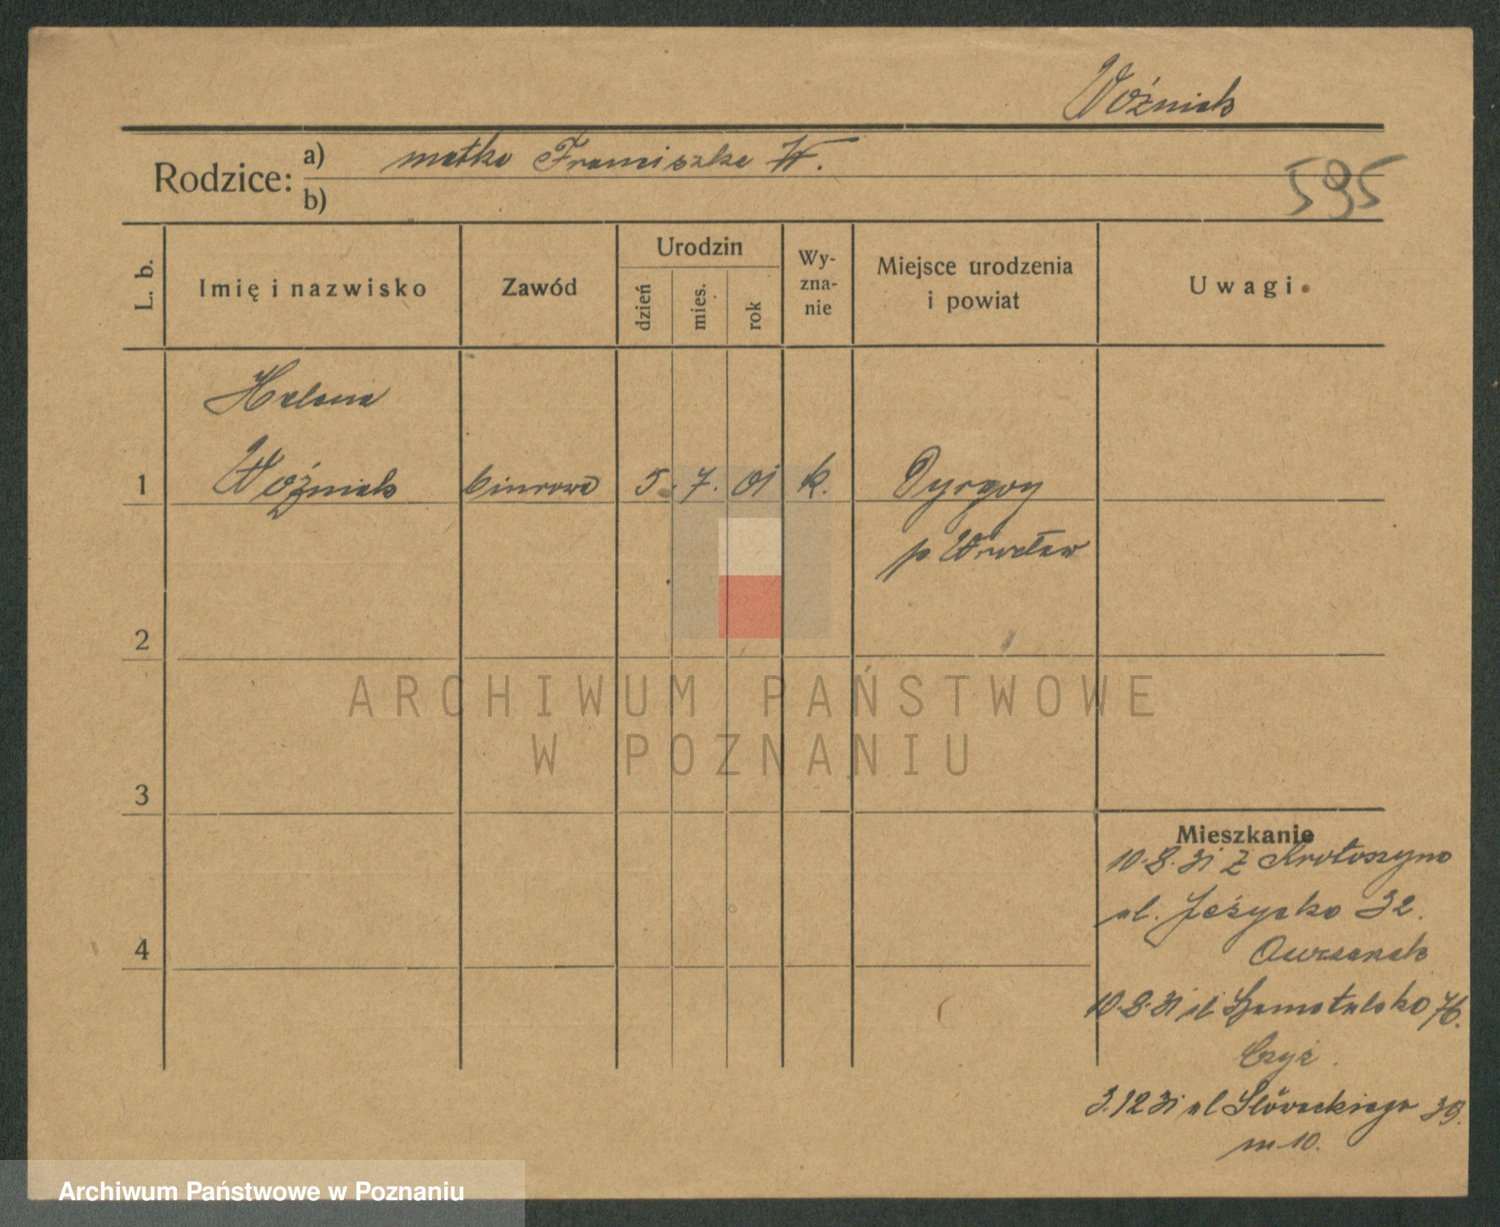 Woźniak
Rodzice: a) matka Franciszka W.
b)
595
L. b.
Imię i nazwisko
Zawód
Urodzin
dzień
mies.
rok
Wy-
zna-
nie
Miejsce urodzenia
i powiat
Uwagi.
Helena
1 Woźniak biurowa 5. 7. 01 k.
p Wrocław
2
3
4
Mieszkanie
10.8.31 z Krotoszyna
ul. Jeżycka 32.
10.8.31 ul. Szamotulska 76.
Czyż.
3.12 31 ul Słowackiego 39.
m 10.
ARCHIWUM PAŃSTWOWE
W POZNANIU
Archiwum Państwowe w Poznaniu